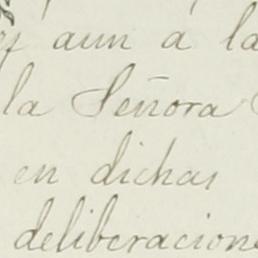 y aun á la
la Señora
en dichas
deliberacion